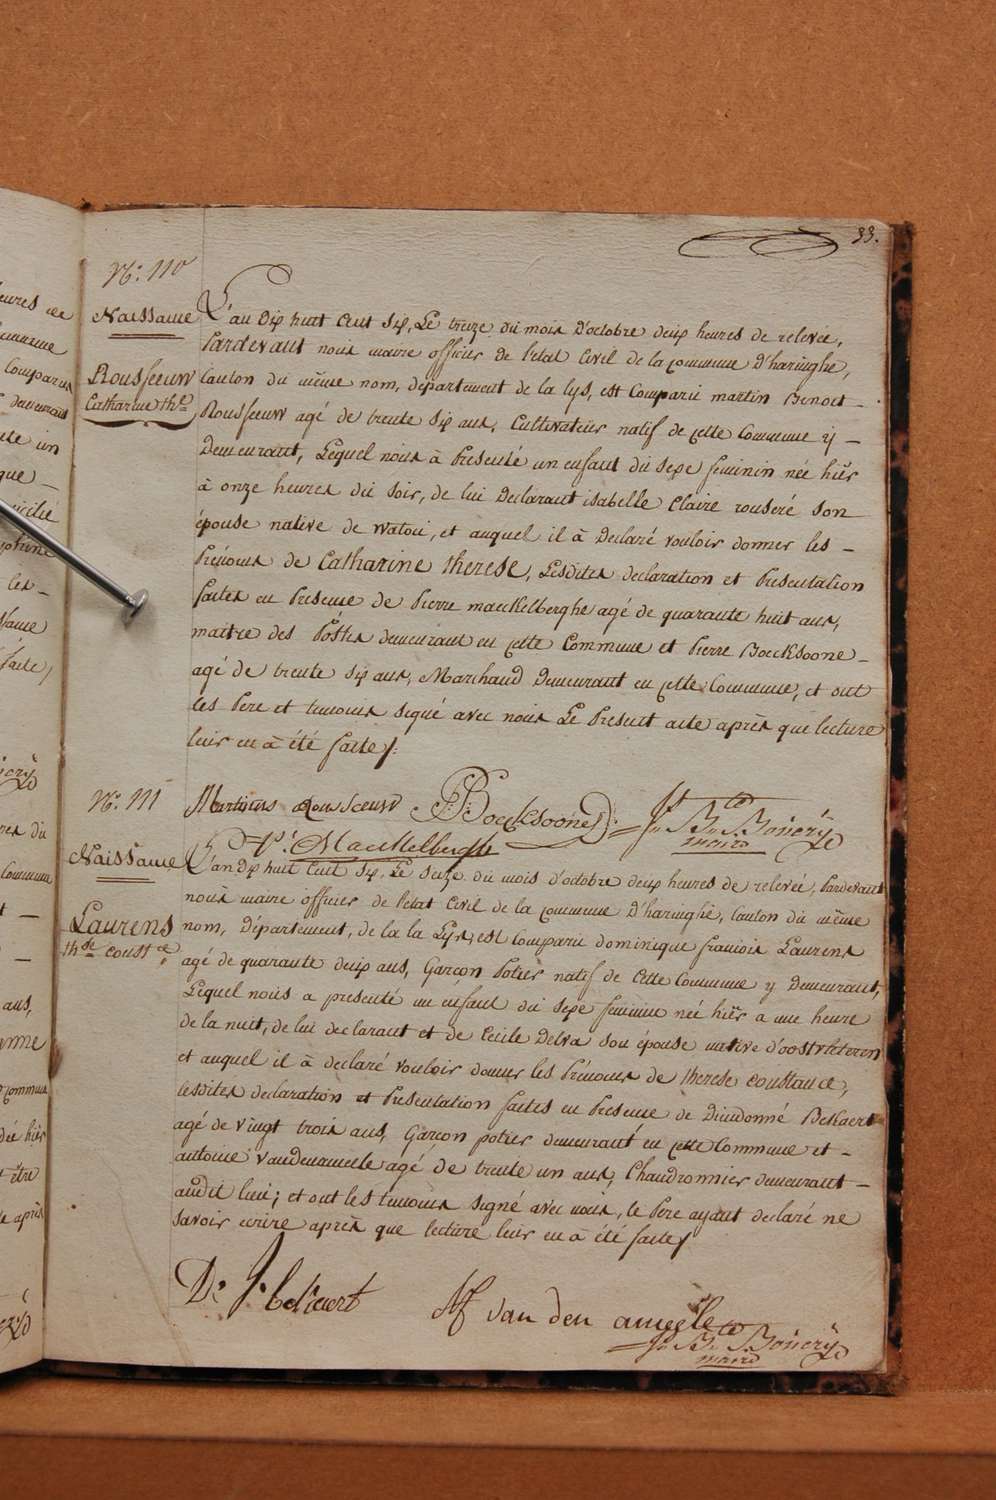 33.
N.o 110
Naissance
Rousseeuw
Catharine Th.e
L'an dix huit cent six, Le treize du mois d'octobre deux heures de relevée,
Pardevant nous maire officier de l'etat Civil de la commune d'haringhe,
Canton du même nom, département de la lys, est Comparu martin Benoit –
Rousseeuw agé de trente six ans, Cultivateur natif de cette Commune y –
Demeurant, Lequel nous à Presenté un enfant du sexe feminin née hier
à onze heures du soir, de lui Declarant isabelle Claire rouseré son
épouse native de watou, et auquel il à Declaré vouloir donner les –
Prénoms de Catharine therese, Lesdites declaration et Presentation
faites en Presence de Pierre maeckelberghe agé de quarante huit ans,
maitre des Postes demeurant en cette Commune et Pierre Boecksoone –
agé de trente six ans, Marchand Demeurant en cette Commune, et ont
les Pere et temoins signé avec nous Le Present acte après que lecture
leur en à été faite /:
Martinus Rousseeuw P: Boecksoone
P.r Maeckelberghe
maire
N.o 111
Naissance
Laurens
th.se const.ce
L'an dix huit Cent six, Le seize du mois d'octobre deux heures de relevée, Pardevant
nous maire officier de l'etat Civil de la commune d'haringhe, Canton du même
nom, Département, de la la Lys, est Comparu dominique francois Laurens
agé de quarante deux ans, Garçon Potier natif de Cette Commune y Demeurant,
Lequel nous a presenté un enfant du sexe feminin née hier a une heure
de la nuit, de lui declarant et de Cecile Delva son épouse native d'oostvleteren
et auquel il à declaré vouloir donner les Prénoms de therese constance,
lesdites declaration et Presentation faites en Presence de Dieudonné Bekaert
agé de vingt trois ans, Garçon potier demeurant en cette Commune et –
antoine vandenameele agé de trente un ans, Chaudronnier demeurant –
audit lieu; et ont les temoins signé avec nous, le Pere ayant declaré ne
savoir ecrire après que lecture leur en à été faite /
D.é J. Bekaert van den ameele
maire